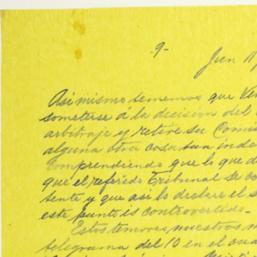 9-
Jun 11
Asi mismo tememos que Ven
someterse á la decision del
arbitraje y retire su Comis
alguna otra cosa tan inde
Comprendiendo que lo que d
que el referido Tribunal se co
tente y que asi lo declare el s
este punto is controvertido.-
Estos temores nuestros n
telegrama del 10 en el cua